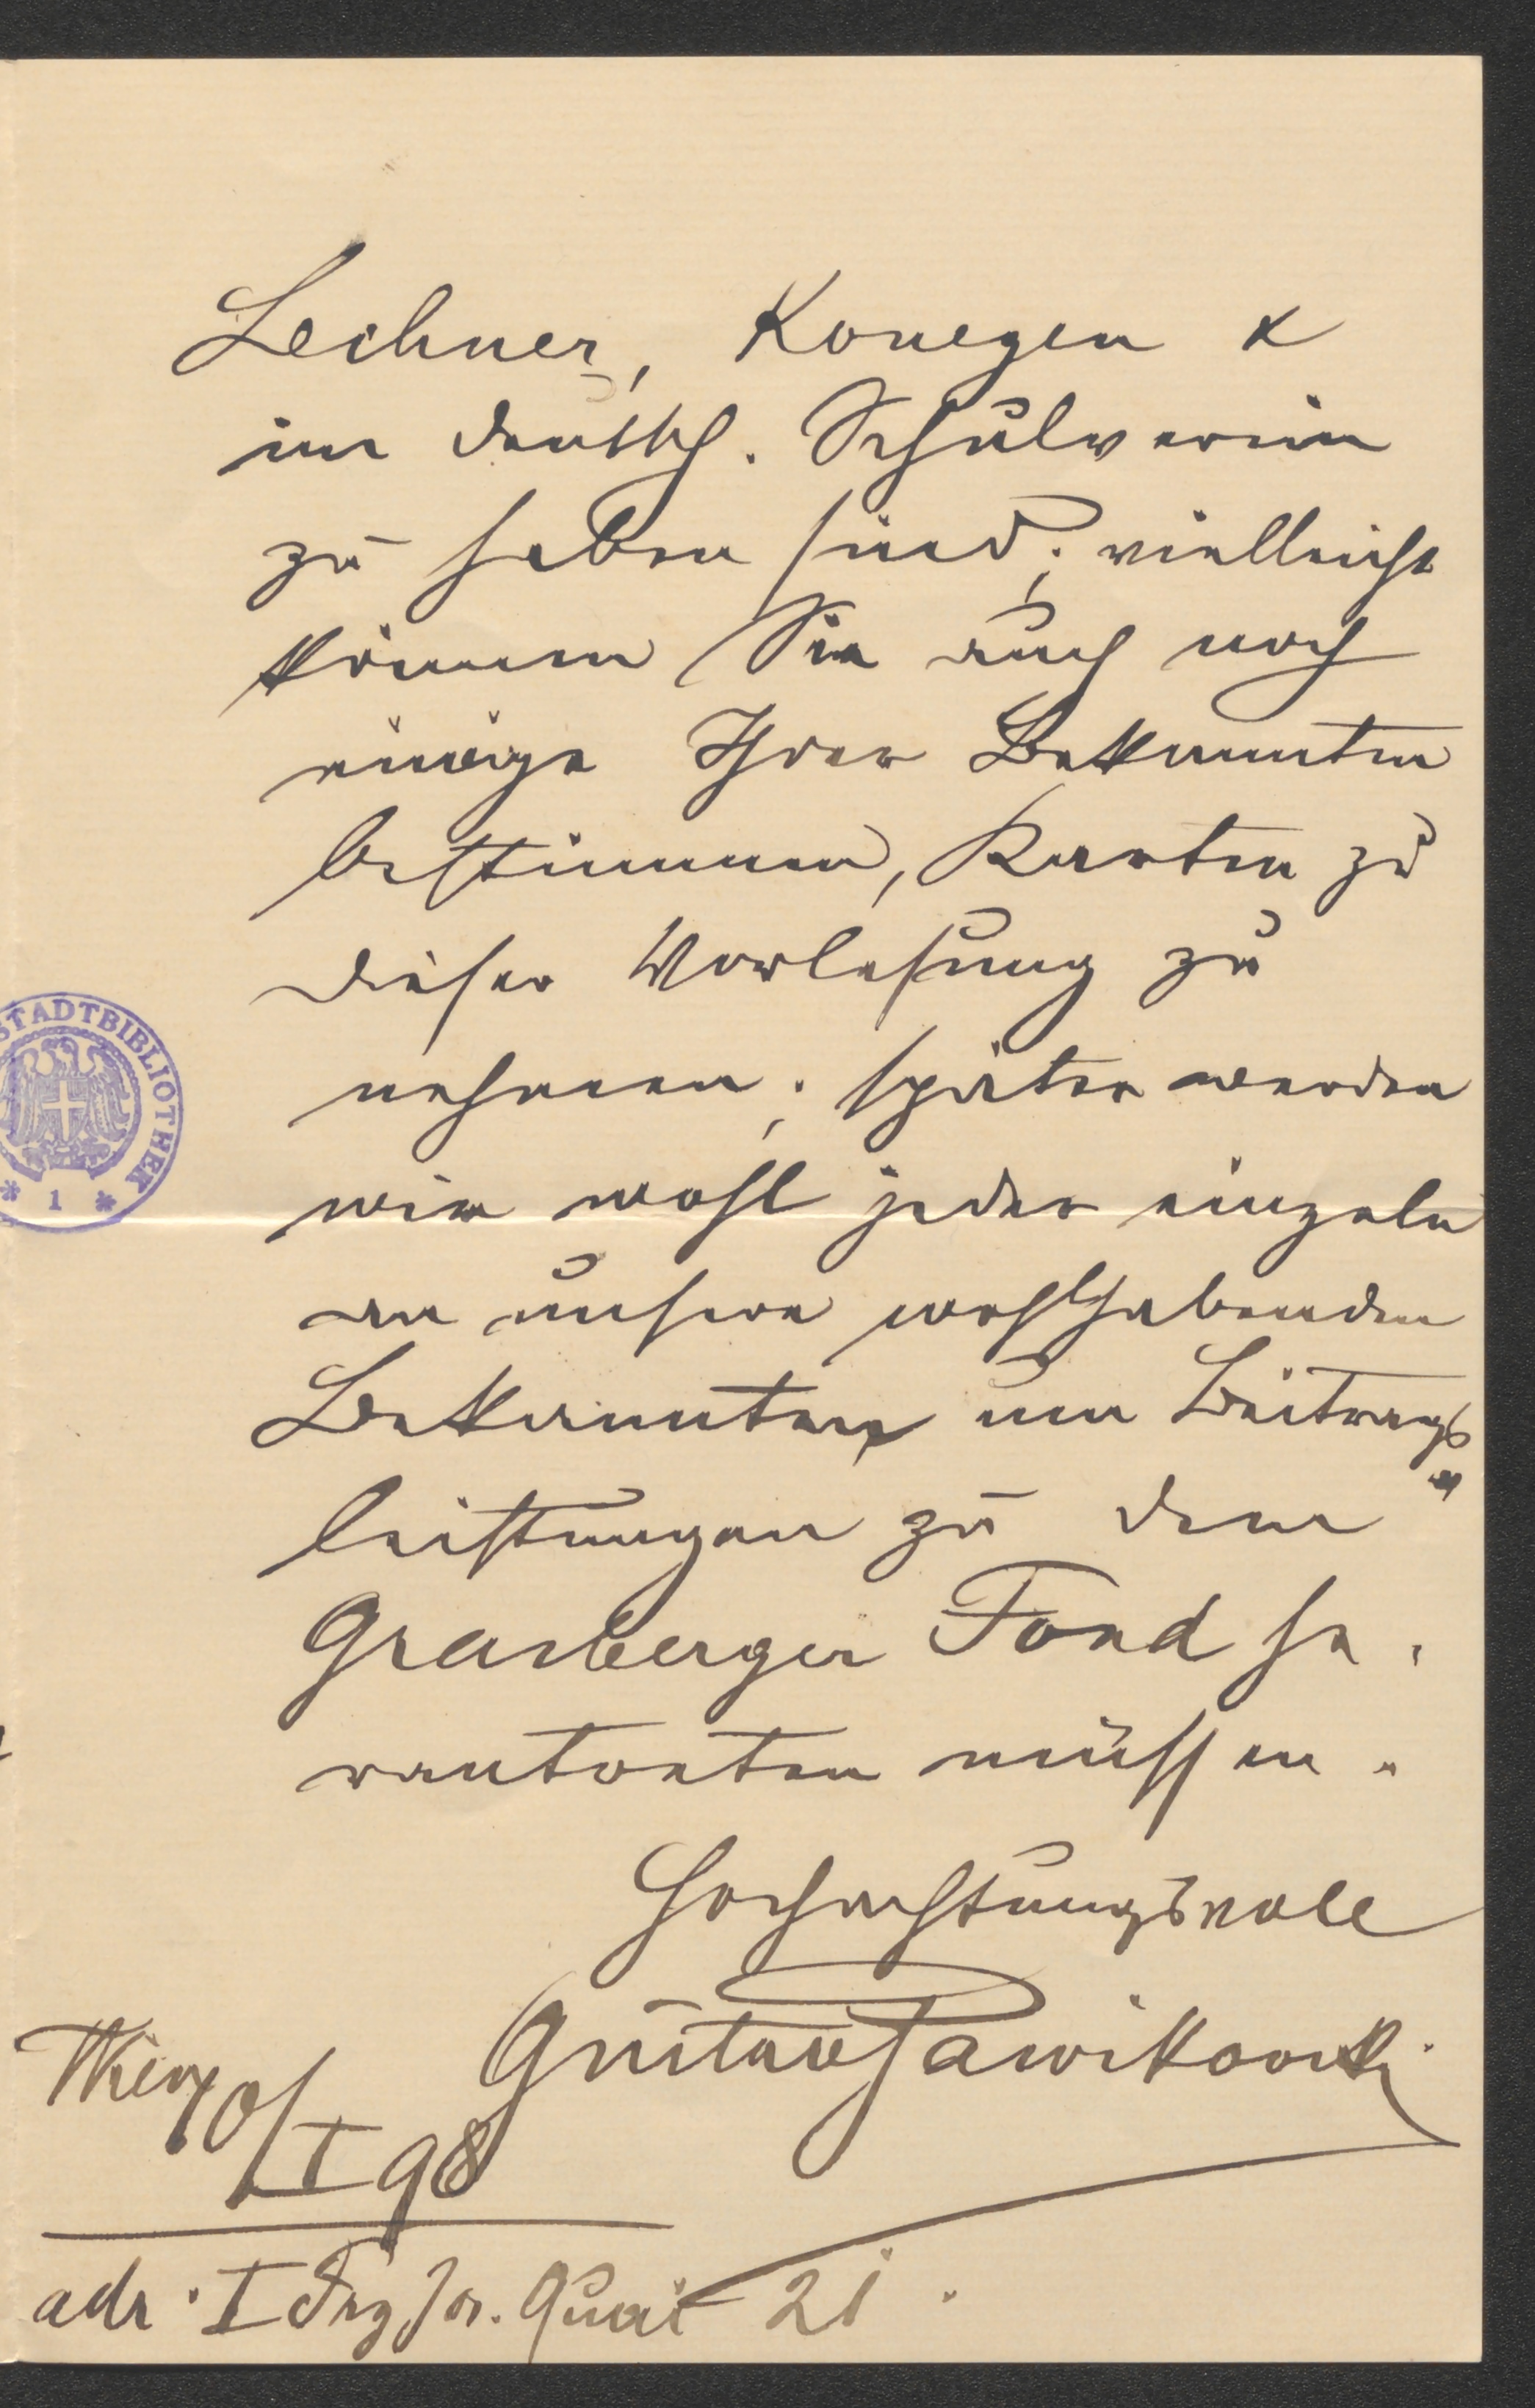 Lechner, Konegen &
im deutsch. Schulverein
zu haben sind; vielleicht
können Sie auch noch
einige Ihrer Bekannten
bestimmen, Karten zu
dieser Vorlesung zu
nehmen; später werden
wir wohl jeder einzeln
an unsere wohlhabenden
Bekannten um Beitrags
leistungen zu dem
Grasberger Fond he¬
rantreten müssen.
Hochachtungsvoll
Gustav Pawikowski
Wien
I 98
adr. I Frz Jos. Quai 21.
STADTBIBLIOTHEK
* 1 *